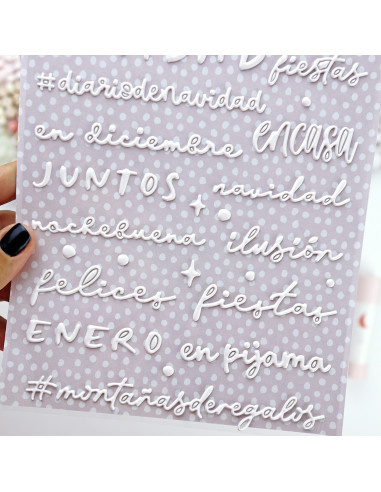 fiestas
#diariodenavidad
en diciembre encasa
JUNTOS navidad
nochebuena ilusión
felices fiestas
ENERO en pijama
#montañasderegalos